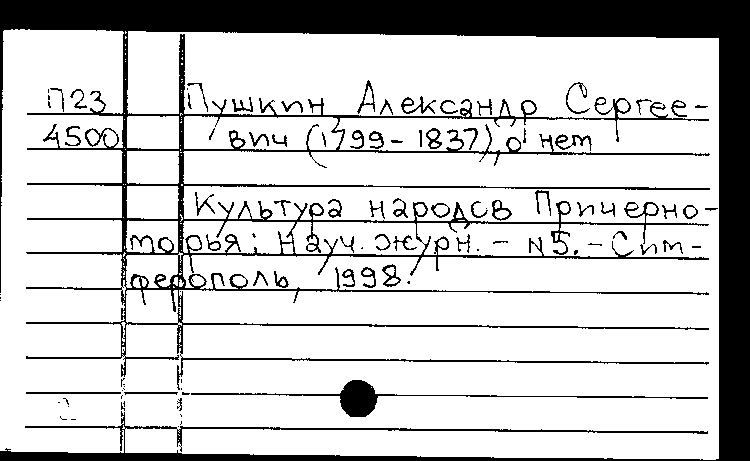 П23 Пушкин Александр Сергее-
4500 вич (1799-1837), о нем
Культура народов Причерно-
морья: Науч. журн. - N5. - Сим-
ферополь, 1998.